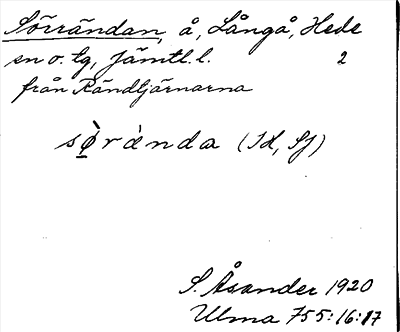 Sörrändan, å, Långå, Hede
sn o. tg, Jämtl. l. 2
från Rändtjärnarna
sø̀rända (Id, Sf)
S. Åsander 1920
Ulma 755:16:17